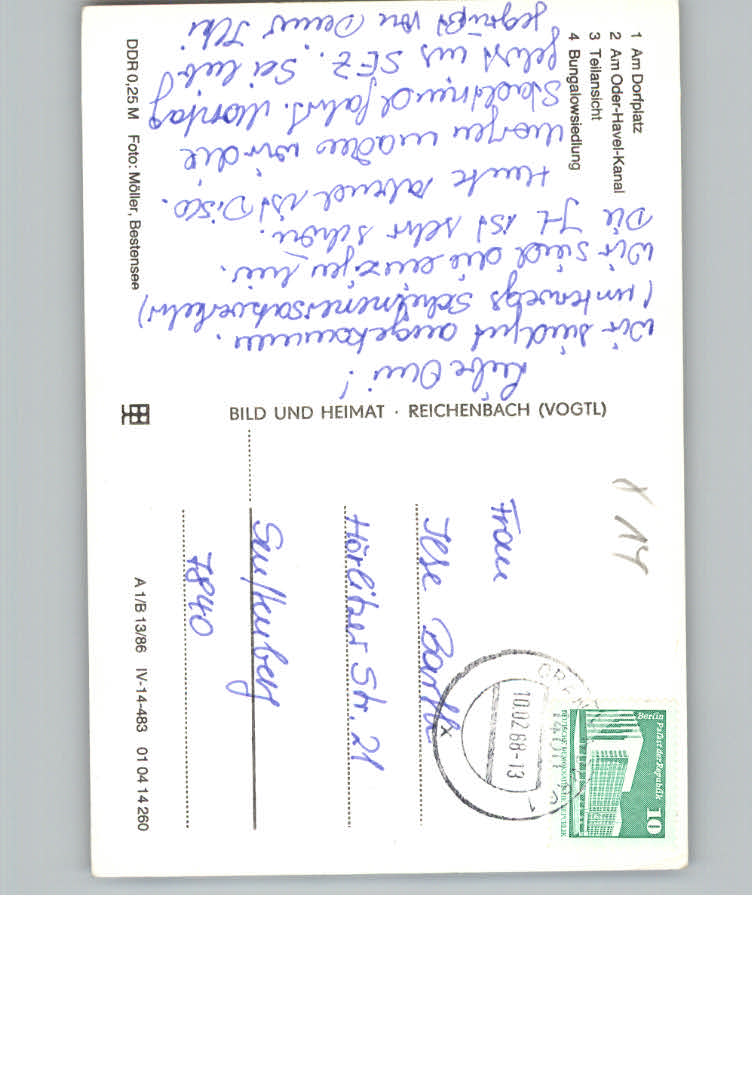 1 Am Dorfplatz
2 Am Oder-Havel-Kanal
3 Teilansicht
4 Bungalowsiedlung
Liebe Omi!
Wir sind gut angekommen.
(unterwegs Schienenersatzverkehr)
Wir sind die einzigen hier.
Die JH ist sehr schön.
Heute abend ist Disco.
Morgen machen wir die
Stadtrundfahrt. Montag
gehts ins SEZ. Sei lieb
gegrüßt von Deiner
DDR 0,25 M Foto: Möller, Bestensee
BILD UND HEIMAT · REICHENBACH (VOGTL)
X 14
Frau
Ilse Barth
Hörlitzer Str. 21
Senftenberg
7840
A 1/B 13/86 IV-14-483 01 04 14 260
10.02.88-13
1
Berlin Palast der Republik
10
DEUTSCHE DEMOKRATISCHE REPUBLIK